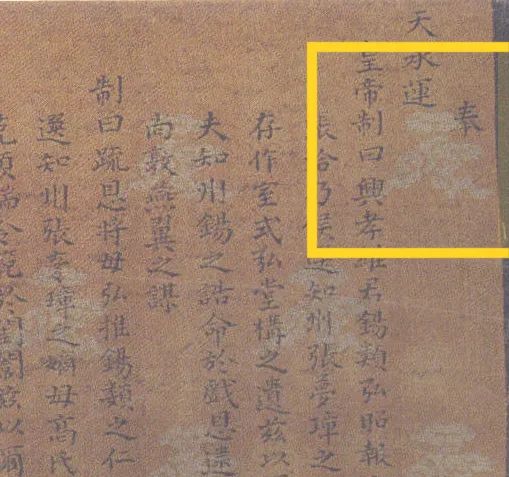 奉
天承運
皇帝制曰興孝維君錫類弘昭報
張乃候選知州張夢璋之
存作室式弘堂構之遺茲以
夫知州錫之誥命於戲恩逮
尚敦燕翼之謀
制曰疏恩將母弘推錫類之仁
選知州張夢璋之嫡母高氏
令範於閨閫茲以